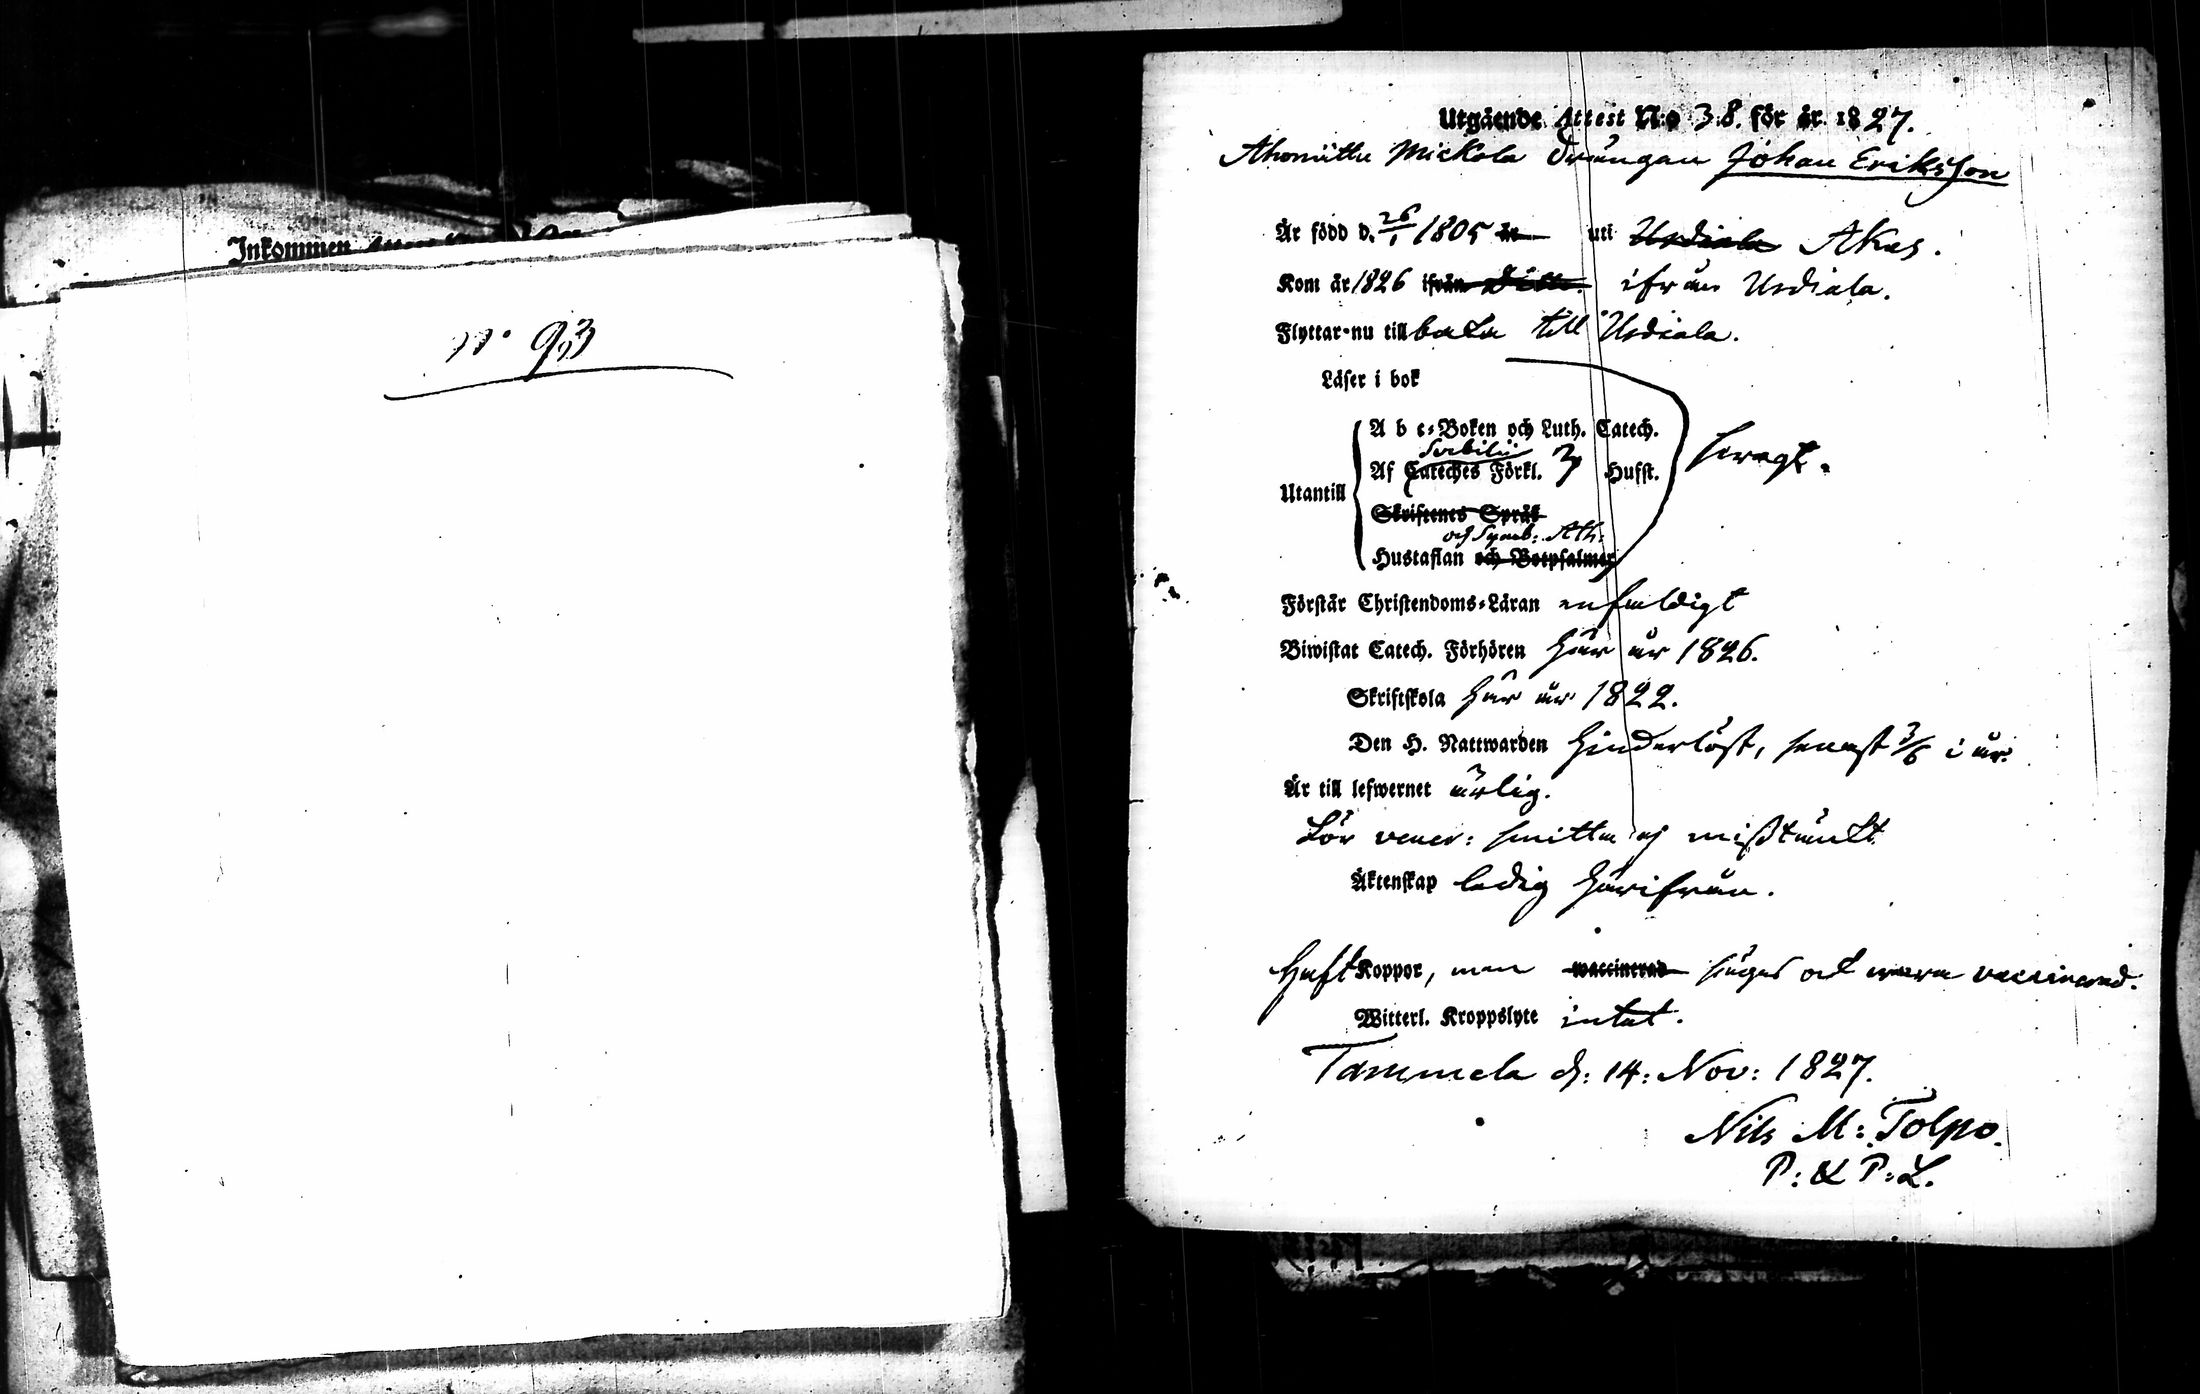 Inkommen
N:o 93
Utgående Attest N:o 38. för år 1827.
Ahonittu Mickola Drängen Johan Eriksson
Är född d. 26/1 1805 in uti Urdiala Akas.
Kom år 1826 ifrån ifrån Urdiala.
Flyttar nu till baka till Urdiala.
Läser i bok
A b c-Boken och Luth. Catech.
Svebilii
Af Cateches Förkl. 3 Husst.
svagt.
Utantill
Skriftenes Språk
och Symb: Ath:
Hustaflan och Botpsalmer
Förstår Christendoms-Läran enfaldigt
Biwistat Catech. Förhören här år 1826.
Skriftskola här år 1822.
Den H. Nattwarden hinderlöst, senast 3/6 i år.
Är till lefwernet ärlig.
För vener: smitta ej misstänkt
Äktenskap ledig härifrån.
Haft Koppor, men waccinerad säges ock vara vaccinerad.
Witterl. Kroppslyte intet.
Tammela d: 14: Nov: 1827.
Nils M: Tolpo.
P: & P: L.